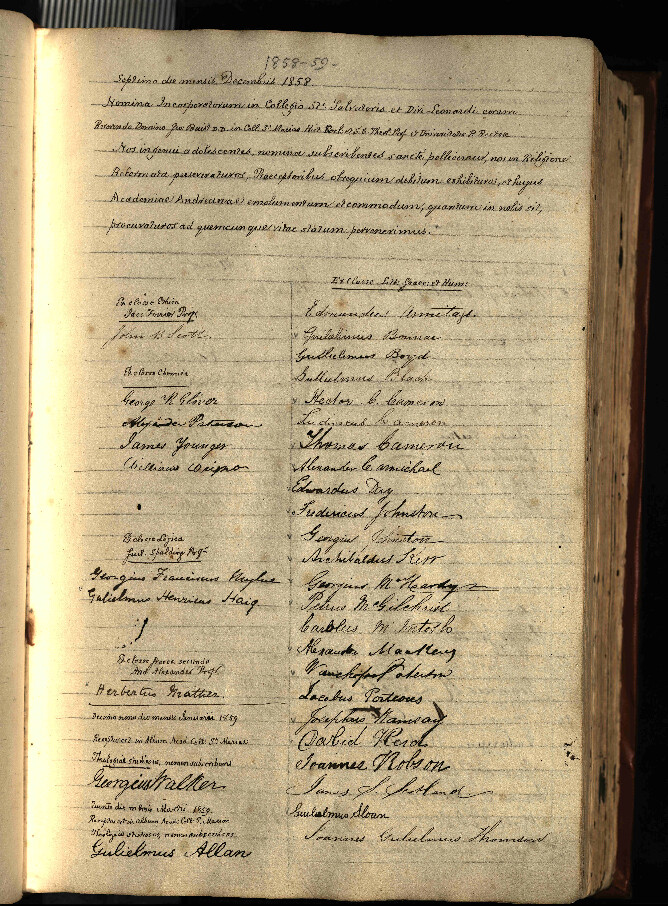 1858-59-
Septimo die mensis Decembris 1858.
Nomina Incorporatorum in Collegio Sti Salvatoris et Divi Leonardi coram
Domino Baird D.D. in Coll. St Mariae Hist. Eccl. Prof. et Universitatis
Nos ingenui adolescentes, nomina subscribentes sancte pollicemur, nos in Religione
Reformata perseveraturos, Praeceptoribus obsequium debitum exhibituros, et hujus
Academiae Andreanae emolumentum et commodum, quantum in nobis sit,
procuraturos ad quemcunque vitae statum pervenerimus.
Ex Classe Ethica
Prof.
John Scott.
Ex classe Chemia
George R Glover
Alexander Paterson
James Younger
William
Ex classe Logica
Gul. Spalding Prof.
Georgius Franciscus
Gulielmus Henricus Haig
Ex classe Graeca secunda
And Alexander Prof.
Herbertus Mather.
Decimo nono die mensis Januarii 1859
Recepturi in Album Acad. Coll. St. Mariae
Theologiae studiosi, nomen subscribunt
Georgius Walker
die mensis Martii 1859
Album Acad. Coll. St. Mariae
Theologiae studiosus, nomen
Gulielmus Allan
Ex Classe Litt. Graec. et Hum:
Edmundus Armitage
Gulielmus Bonnar
Guilhelmus Boyd
Gulielmus
Hector C. Cameron
Ludovicus Cameron
Thomas Cameron
Alexander Carmichael
Edwardus Day
Fredericus Johnston
Georgius Johnston
Archibaldus Kerr
Georgius McHardy
Petrus McGilchrist
Carolus McIntosh
Alexander Mackenzy
Wauchope Paterson
Jacobus Porteous
Josephus Ramsay
David Reid
Joannes Robson
James S. Shetland
Gulielmus Sloan
Joannes Gulielmus Thomson